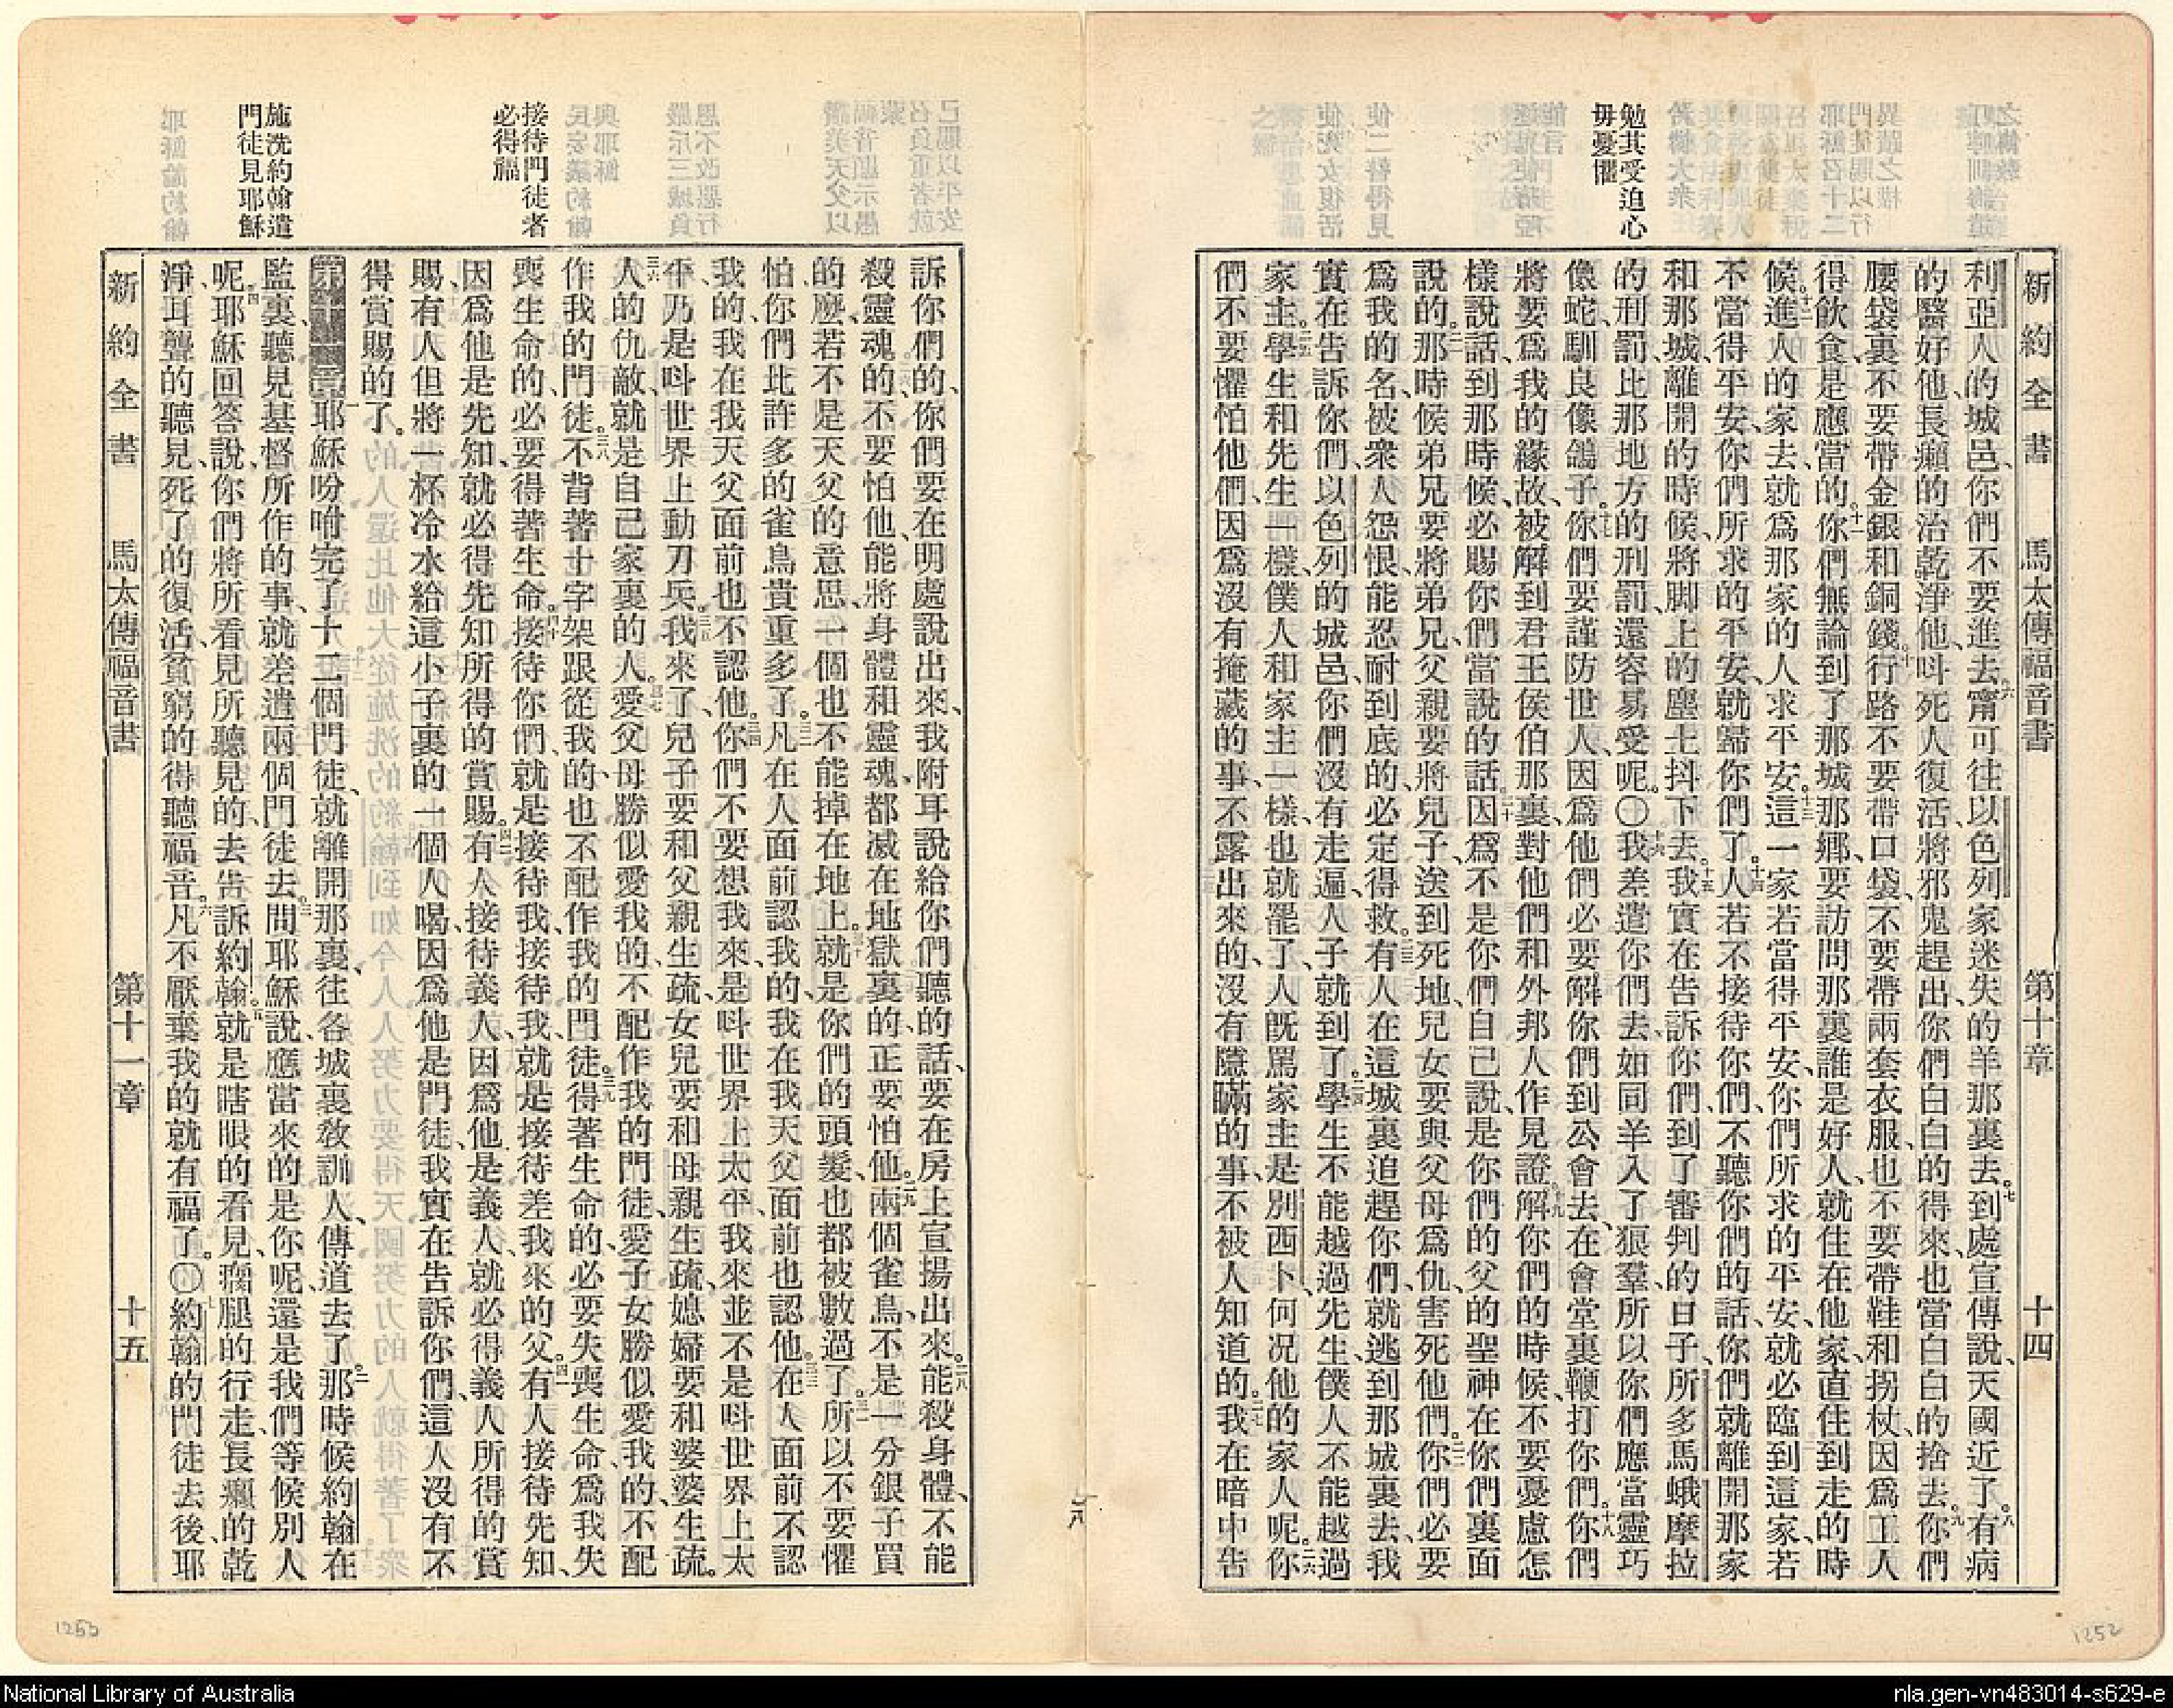 新約全書 馬太傳福音書 第十章 十四
勉其受迫心
毋憂懼
利亞人的城邑、你們不要進去。六甯可往以色列家迷失的羊那裏去。七到處宣傳說、天國近了。八有病
的醫好他、長癩的治乾淨他、呌死人復活、將邪鬼趕出、你們白白的得來、也當白白的捨去。九你們
腰袋裏不要帶金銀和銅錢。十行路不要帶口袋、不要帶兩套衣服、也不要帶鞋和拐杖、因爲工人
得飲食是應當的。十一你們無論到了那城那鄕、要訪問那裏誰是好人、就住在他家、直住到走的時
候。十二進人的家去、就爲那家的人求平安。十三這一家若當得平安、你們所求的平安、就必臨到這家、若
不當得平安、你們所求的平安、就歸你們了。十四人若不接待你們、不聽你們的話、你們就離開那家
和那城、離開的時候、將脚上的塵土抖下去。十五我實在告訴你們、到了審判的日子、所多馬蛾摩拉
的刑罰、比那地方的刑罰、還容易受呢。〇十六我差遣你們去、如同羊入了狼羣、所以你們應當靈巧
像蛇、馴良像鴿子。十七你們要謹防世人、因爲他們必要解你們到公會去、在會堂裏鞭打你們。十八你們
將要爲我的緣故、被解到君王侯伯那裏、對他們和外邦人作見證。十九解你們的時候、不要憂慮怎
樣說話、到那時候、必賜你們當說的話。二十因爲不是你們自己說、是你們的父的聖神在你們裏面
說的。二一那時候弟兄要將弟兄、父親要將兒子、送到死地、兒女要與父母爲仇、害死他們。二二你們必要
爲我的名、被衆人怨恨、能忍耐到底的、必定得救。二三有人在這城裏追趕你們、就逃到那城裏去、我
實在告訴你們、以色列的城邑、你們沒有走遍、人子就到了。二四學生不能越過先生、僕人不能越過
家主。二五學生和先生一樣、僕人和家主一樣、也就罷了、人旣罵家主是別西卜、何况他的家人呢。二六你
們不要懼怕他們、因爲沒有掩藏的事、不露出來的、沒有隱瞞的事、不被人知道的。二七我在暗中告
接待門徒者
必得福
施洗約翰遣
門徒見耶穌
訴你們的、你們要在明處說出來、我附耳說給你們聽的話、要在房上宣揚出來。二八能殺身體、不能
殺靈魂的、不要怕他、能將身體和靈魂、都滅在地獄裏的、正要怕他。二九兩個雀鳥、不是一分銀子買
的麽、若不是天父的意思、一個也不能掉在地上。三十就是你們的頭髮、也都被數過了。三一所以不要懼
怕、你們比許多的雀鳥貴重多了。三二凡在人面前認我的、我在我天父面前也認他。三三在人面前不認
我的、我在我天父面前也不認他。三四你們不要想我來、是呌世界上太平、我來並不是呌世界上太
平、乃是呌世界上動刀兵。三五我來了、兒子要和父親生疏、女兒要和母親生疏、媳婦要和婆婆生疏。
三六人的仇敵、就是自己家裏的人。三七愛父母勝似愛我的、不配作我的門徒、愛子女勝似愛我的、不配
作我的門徒。三八不背著十字架跟從我的、也不配作我的門徒。三九得著生命的、必要失喪生命、爲我失
喪生命的、必要得著生命。四十接待你們、就是接待我、接待我、就是接待差我來的父。四一有人接待先知、
因爲他是先知、就必得先知所得的賞賜。有人接待義人、因爲他是義人、就必得義人所得的賞
賜、四二有人但將一杯冷水給這小子裏的一個人喝、因爲他是門徒、我實在告訴你們、這人沒有不
得賞賜的了。
第十一章一耶穌吩咐完了十二個門徒、就離開那裏、往各城裏敎訓人、傳道去了。二那時候約翰在
監裏、聽見基督所作的事、就差遣兩個門徒去。三問耶穌說、應當來的是你呢、還是我們等候別人
呢。四耶穌回答說、你們將所看見所聽見的、去告訴約翰。五就是瞎眼的看見、瘸腿的行走、長癩的乾
淨、耳聾的聽見、死了的復活、貧窮的得聽福音。六凡不厭棄我的、就有福了。〇七約翰的門徒去後、耶
新約全書 馬太傳福音書 第十一章 十五
1253
1252
National Library of Australia
nla.gen-vn483014-s629-e